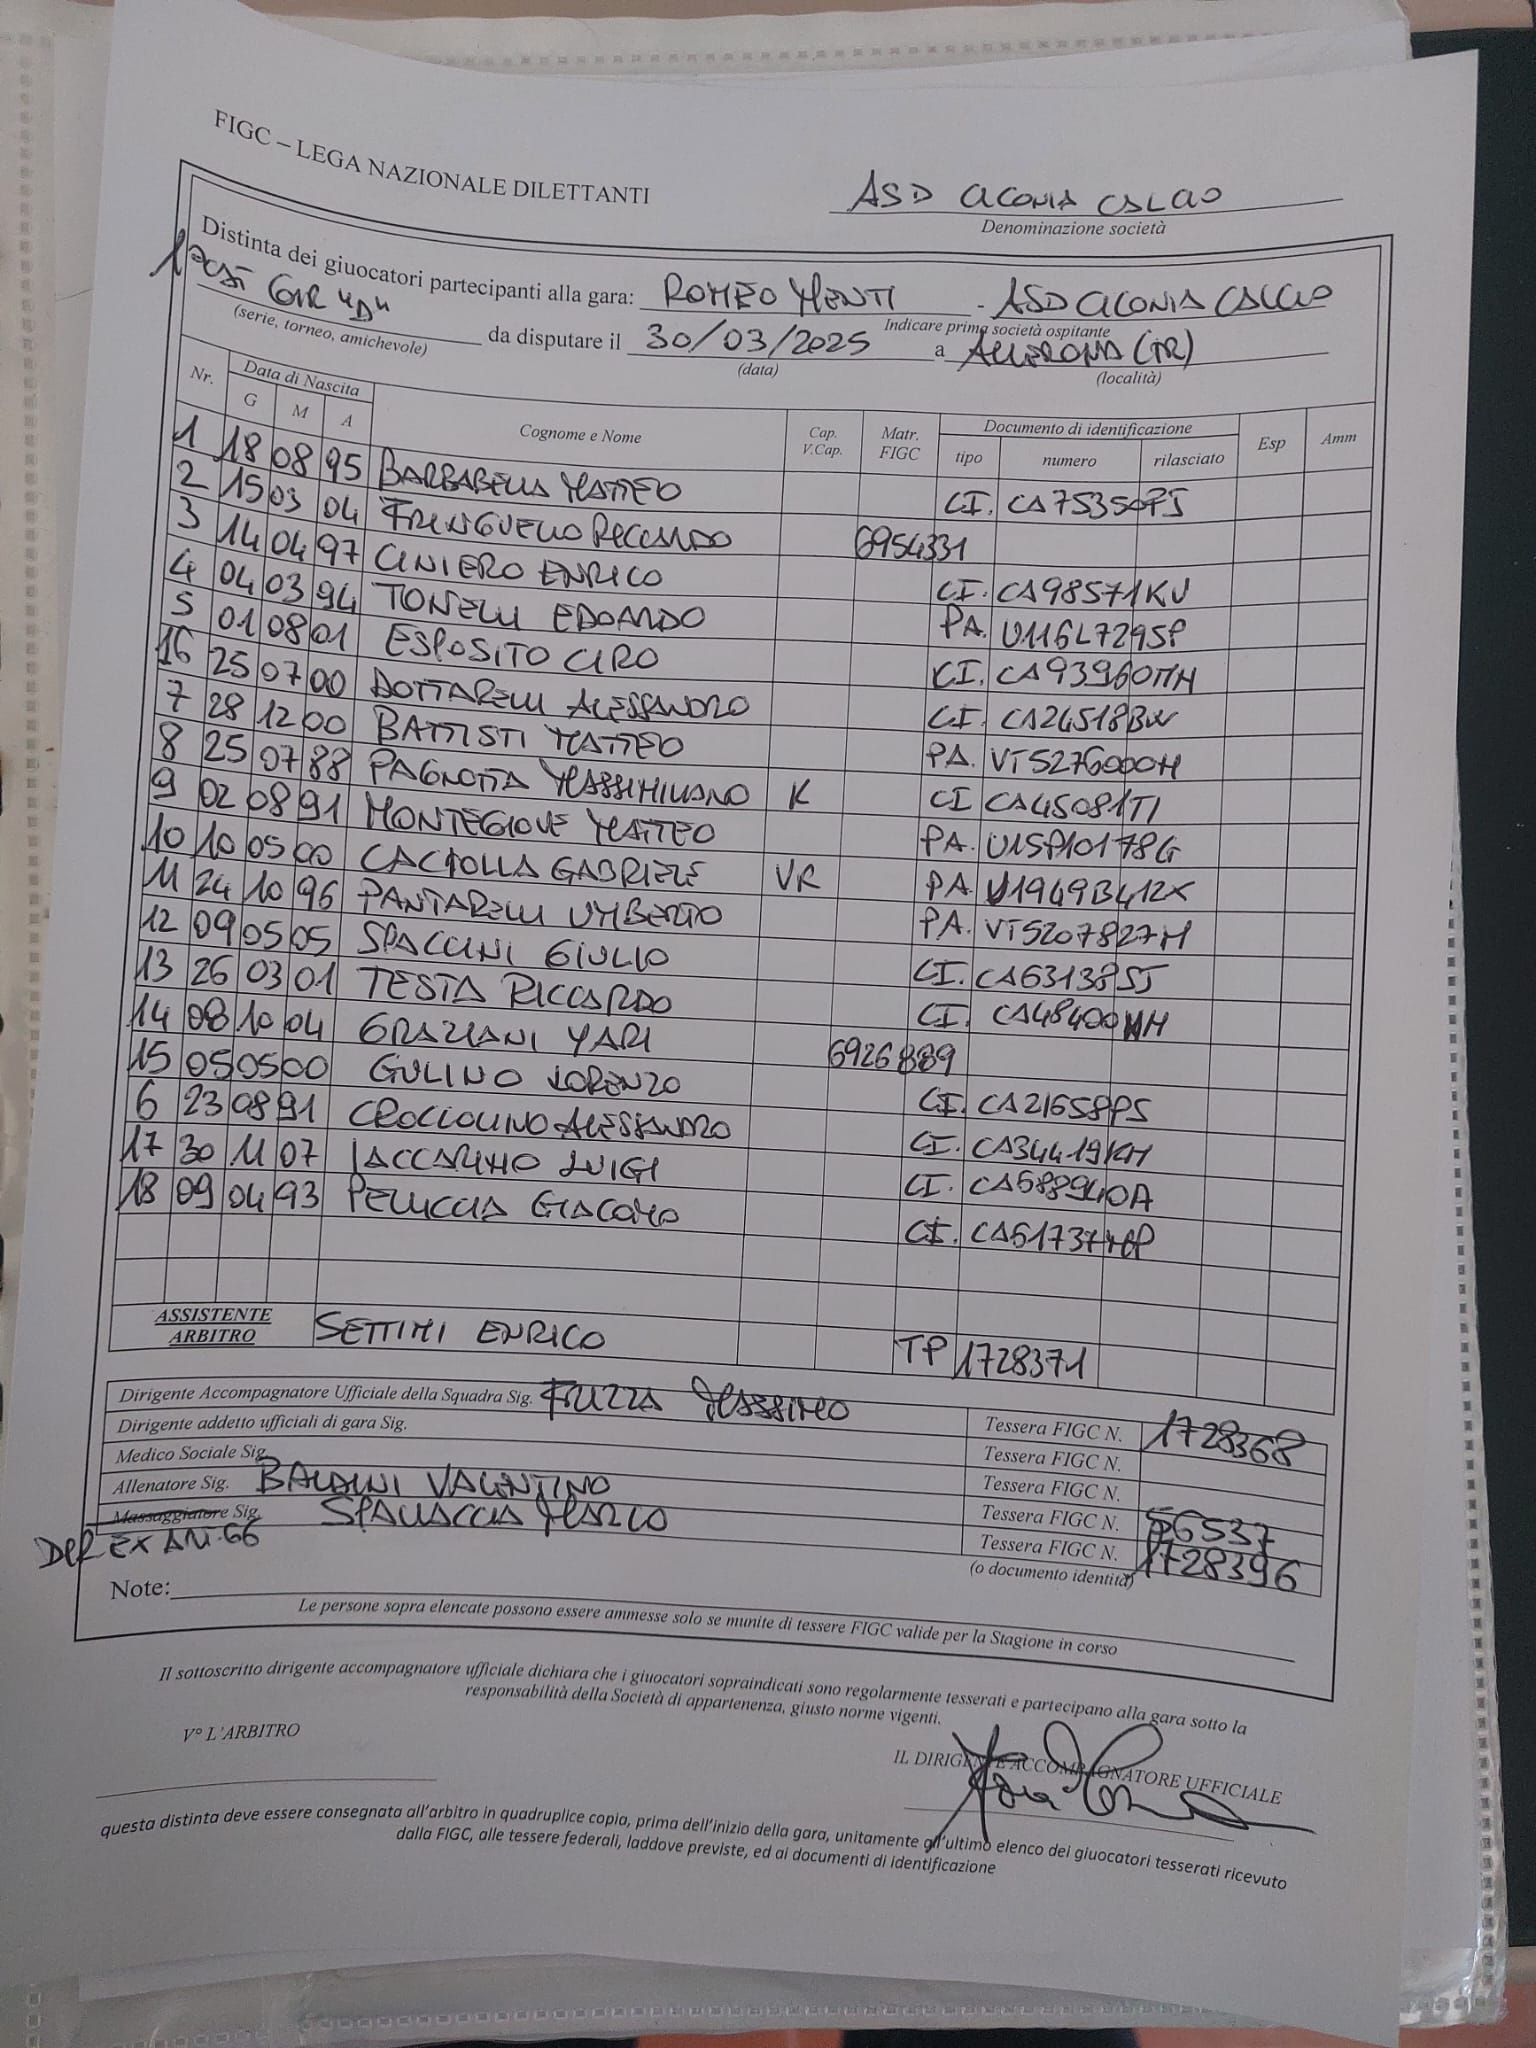 FIGC – LEGA NAZIONALE DILETTANTI
ASD CICONIA CALCIO
Denominazione società
Distinta dei giuocatori partecipanti alla gara: ROMEO MENTI - ASD CICONIA CALCIO
Indicare prima società ospitante
GIR "D" da disputare il 30/03/2025 a ALLERONA (TR)
(serie, torneo, amichevole) (data) (località)
Nr. Data di Nascita Cognome e Nome Cap. V.Cap. Matr. FIGC Documento di identificazione Esp Amm
G M A tipo numero rilasciato
1 18 08 95 BARBABELLA MATTEO CI. CA75350PJ
2 15 03 04 FRINGUELLO RICCARDO 6954331
3 14 04 97 CINIERO ENRICO CI. CA98571KU
4 04 03 94 TONELLI EDOARDO PA. U116L7295P
5 01 08 01 ESPOSITO CIRO CI. CA93960MH
16 25 07 00 DOTTARELLI ALESSANDRO CI. CA24518BW
7 28 12 00 BATTISTI MATTEO PA. VT5276000H
8 25 07 88 PAGNOTTA MASSIMILIANO K CI CA45081TI
9 02 08 91 MONTEGIOVE MATTEO PA. U15P10178G
10 10 05 00 CACIOLLA GABRIELE VK PA U1949B412X
11 24 10 96 PANTARELLI UMBERTO PA. VT5207827H
12 09 05 05 SPACCINI GIULIO CI. CA63138SJ
13 26 03 01 TESTA RICCARDO CI. CA48400
14 08 10 04 GRAZIANI YARI 6926889
15 05 05 00 GULINO LORENZO CI. CA21658PS
6 23 08 91 CROCCOLINO ALESSANDRO CI. CA34419KH
17 30 11 07 IACCARINO LUIGI CI. CA58894OA
18 09 04 93 PELICCIA GIACOMO CI.
ASSISTENTE ARBITRO SETTIMI ENRICO TP 1728371
Dirigente Accompagnatore Ufficiale della Squadra Sig. FRIZZA MASSIMO Tessera FIGC N. 1728368
Dirigente addetto ufficiali di gara Sig. Tessera FIGC N.
Medico Sociale Sig. Tessera FIGC N.
Allenatore Sig. BALDINI VALENTINO Tessera FIGC N. 56537
Massaggiatore Sig. SPALLACCIA MARCO Tessera FIGC N. 1728396
DIR EX ART. 66 (o documento identità)
Note:
Le persone sopra elencate possono essere ammesse solo se munite di tessere FIGC valide per la Stagione in corso
Il sottoscritto dirigente accompagnatore ufficiale dichiara che i giuocatori sopraindicati sono regolarmente tesserati e partecipano alla gara sotto la
responsabilità della Società di appartenenza, giusto norme vigenti.
V° L'ARBITRO
IL DIRIGENTE ACCOMPAGNATORE UFFICIALE
questa distinta deve essere consegnata all'arbitro in quadruplice copia, prima dell'inizio della gara, unitamente all'ultimo elenco dei giuocatori tesserati ricevuto
dalla FIGC, alle tessere federali, laddove previste, ed ai documenti di identificazione